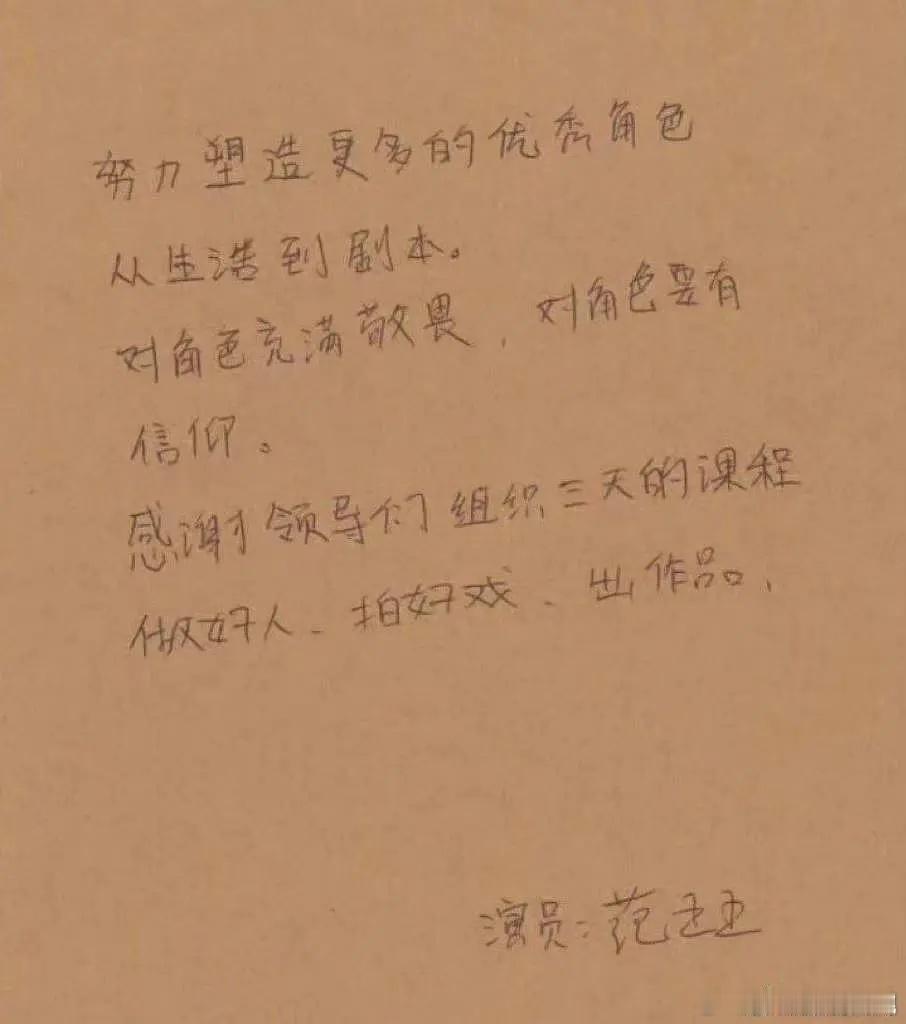 努力塑造更多的优秀角色
从生活到剧本。
对角色充满敬畏，对角色要有
信仰。
感谢领导们组织三天的课程
做好人、拍好戏、出作品、
演员：范